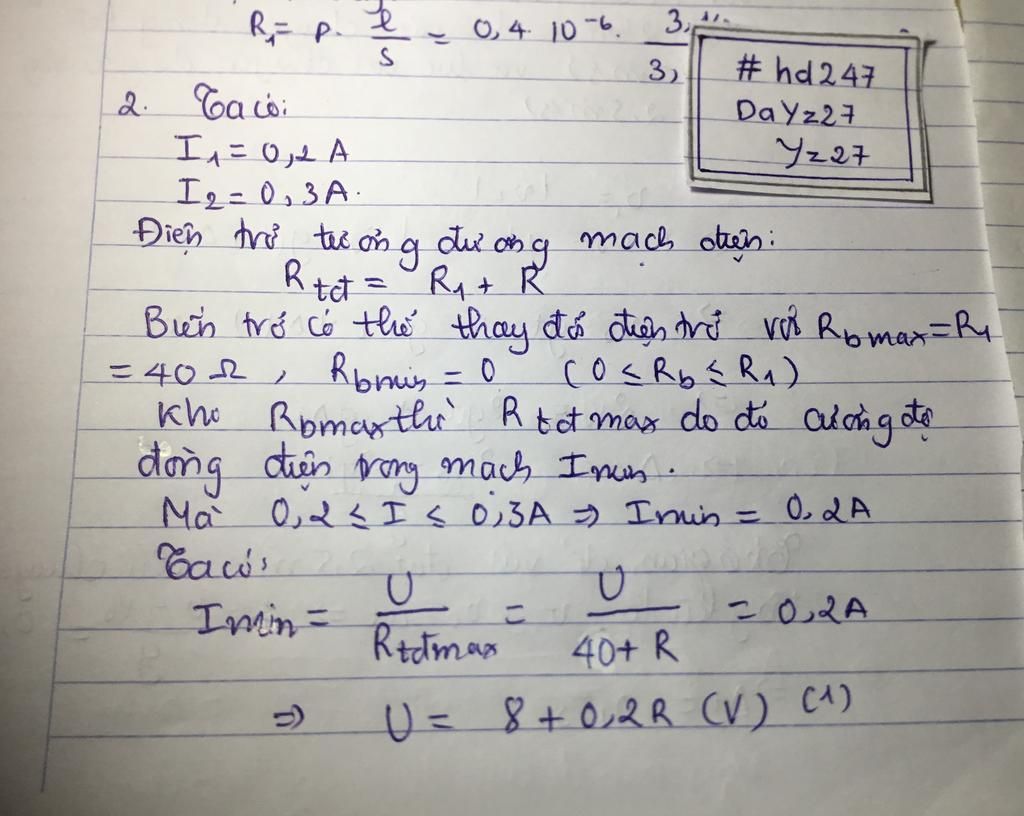 R₁ = ρ. l/s = 0,4. 10⁻⁶. 3, / 3,
# hd247
DaYz27
Yz27
2. Ta có:
I₁ = 0,2 A
I₂ = 0,3A.
Điện trở tương đương mạch điện:
Rtđ = R₁ + R
Biến trở có thể thay đổi điện trở với Rbmax = R₁
= 40 Ω, Rbmin = 0 (0 ≤ Rb ≤ R₁)
Khi Rbmax thì Rtđmax do đó cường độ
dòng điện trong mạch Imin.
Mà 0,2 ≤ I ≤ 0,3A ⇒ Imin = 0,2A
Ta có:
Imin = U/Rtđmax = U/40+R = 0,2A
⇒ U = 8 + 0,2R (V) (1)